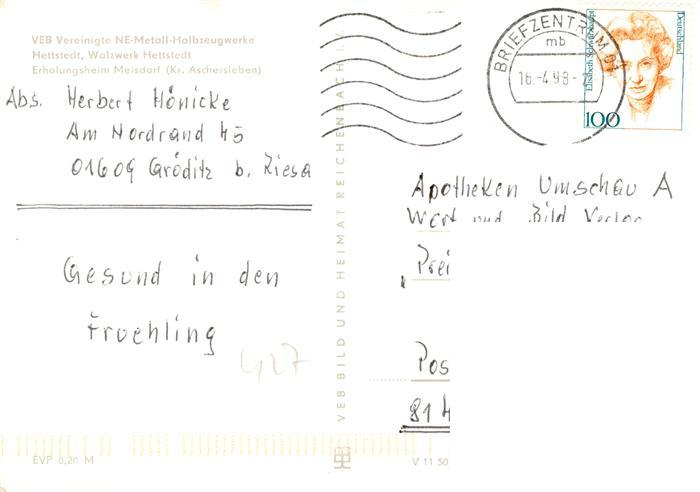 VEB Vereinigte NE-Metall-Halbzeugwerke
Hettstedt, Walzwerk Hettstedt
Erholungsheim Meisdorf (Kr. Aschersleben)
Abs. Herbert Hönicke
Am Nordrand 45
01609 Gröditz b. Riesa
Gesund in den
Fruehling
427
EVP 0,20 M
VEB BILD UND HEIMAT REICHENBACH i. V.
V 11 50
BRIEFZENTRUM
mb
16.-4.98-2
Deutschland
Elisabeth Schwarzhaupt
100
Apotheken Umschau A
Wort und Bild Verlag
Prei
Pos
81